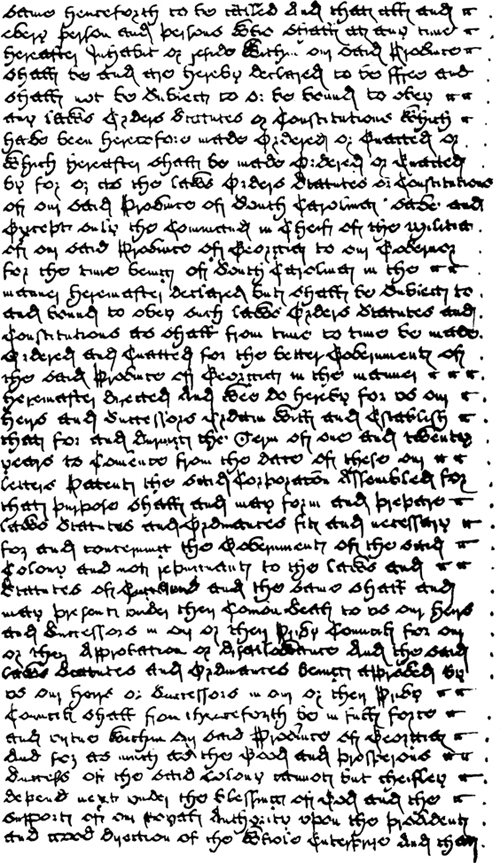 same henceforth to be called And that all and
every person and persons who shall at any time
hereafter Inhabit or reside within our said Province
shall be and are hereby declared to be ffree and
shall not be Subject to or be bound to obey
any laws Orders Statutes or Constitutions which
have been heretofore made Ordered or Enacted or
which hereafter shall be made Ordered or Enacted
by for or as the laws Orders Statutes or Constitutions
of our said Province of South Carolina save and
Except only the Command in Cheif of the Militia
of our said Province of Georgia to our Governor
for the time being of South Carolina in the
manner hereinafter declared but shall be Subject to
and bound to obey such laws Orders Statutes and
Constitutions as shall from time to time be made
Ordered and Enacted for the better Government of
the said Province of Georgia in the manner
hereinafter directed And Wee do hereby for us our
heirs and Successors Ordain Will and Establish
that for and during the Term of one and twenty
years to Comence from the date of these our
letters Patents the said Corporation Assembled for
that purpose shall and may form and prepare
laws Statutes and Ordinances fitt and necessary
for and concerning the Government of the said
Colony and not repugnant to the laws and
Statutes of England and the same shall and
may present under their Comon Seal to us our heirs
and Successors in our or their Privy Council for our
or their Approbation or disallowance And the said
laws Statutes and Ordinances being approved by
us our heirs or Successors in our or their Privy
Council shall from thenceforth be in full force
and virtue within our said Province of Georgia
And for as much as the Good and prosperous
Success of the said Colony cannot but cheifley
depend next under the blessing of God and the
support of our Royal Authority upon the provident
and good direction of the whole Enterprise And that